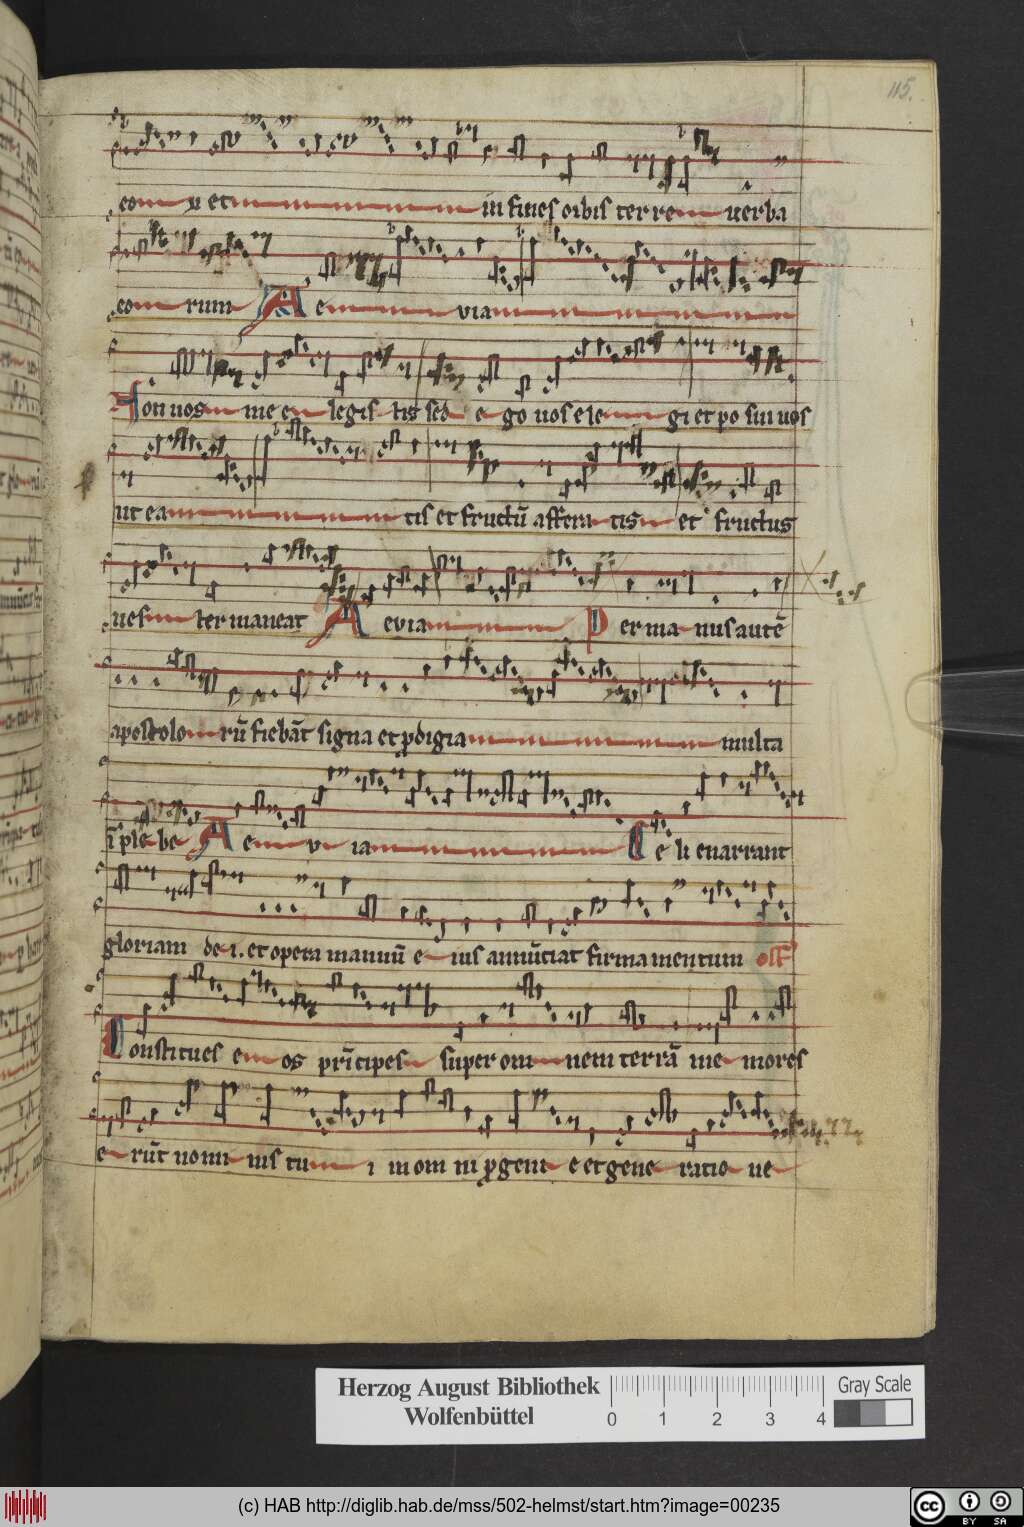 115.
eo u et in fines orbis terre uerba
eo rum A e via
Non uos me e legis tis sed e go uos ele gi et po sui uos
ut ea tis et fructū affera tis et fructus
ues ter maneat A evia P er ma nus autē
apostolo rū fiebāt signa et pdigia multa
ī ple be A e v ia C e li enarrant
gloriam de i. et opera manuū e ius annūciat firmamentum off
Constitues e os prīcipes super om nem terrā me mores
e rūt nomi nis tu i in om ni pgeni e et gene ratio ne
Herzog August Bibliothek
Wolfenbüttel
0 1 2 3 4
Gray Scale
(c) HAB http://diglib.hab.de/mss/502-helmst/start.htm?image=00235
cc BY SA